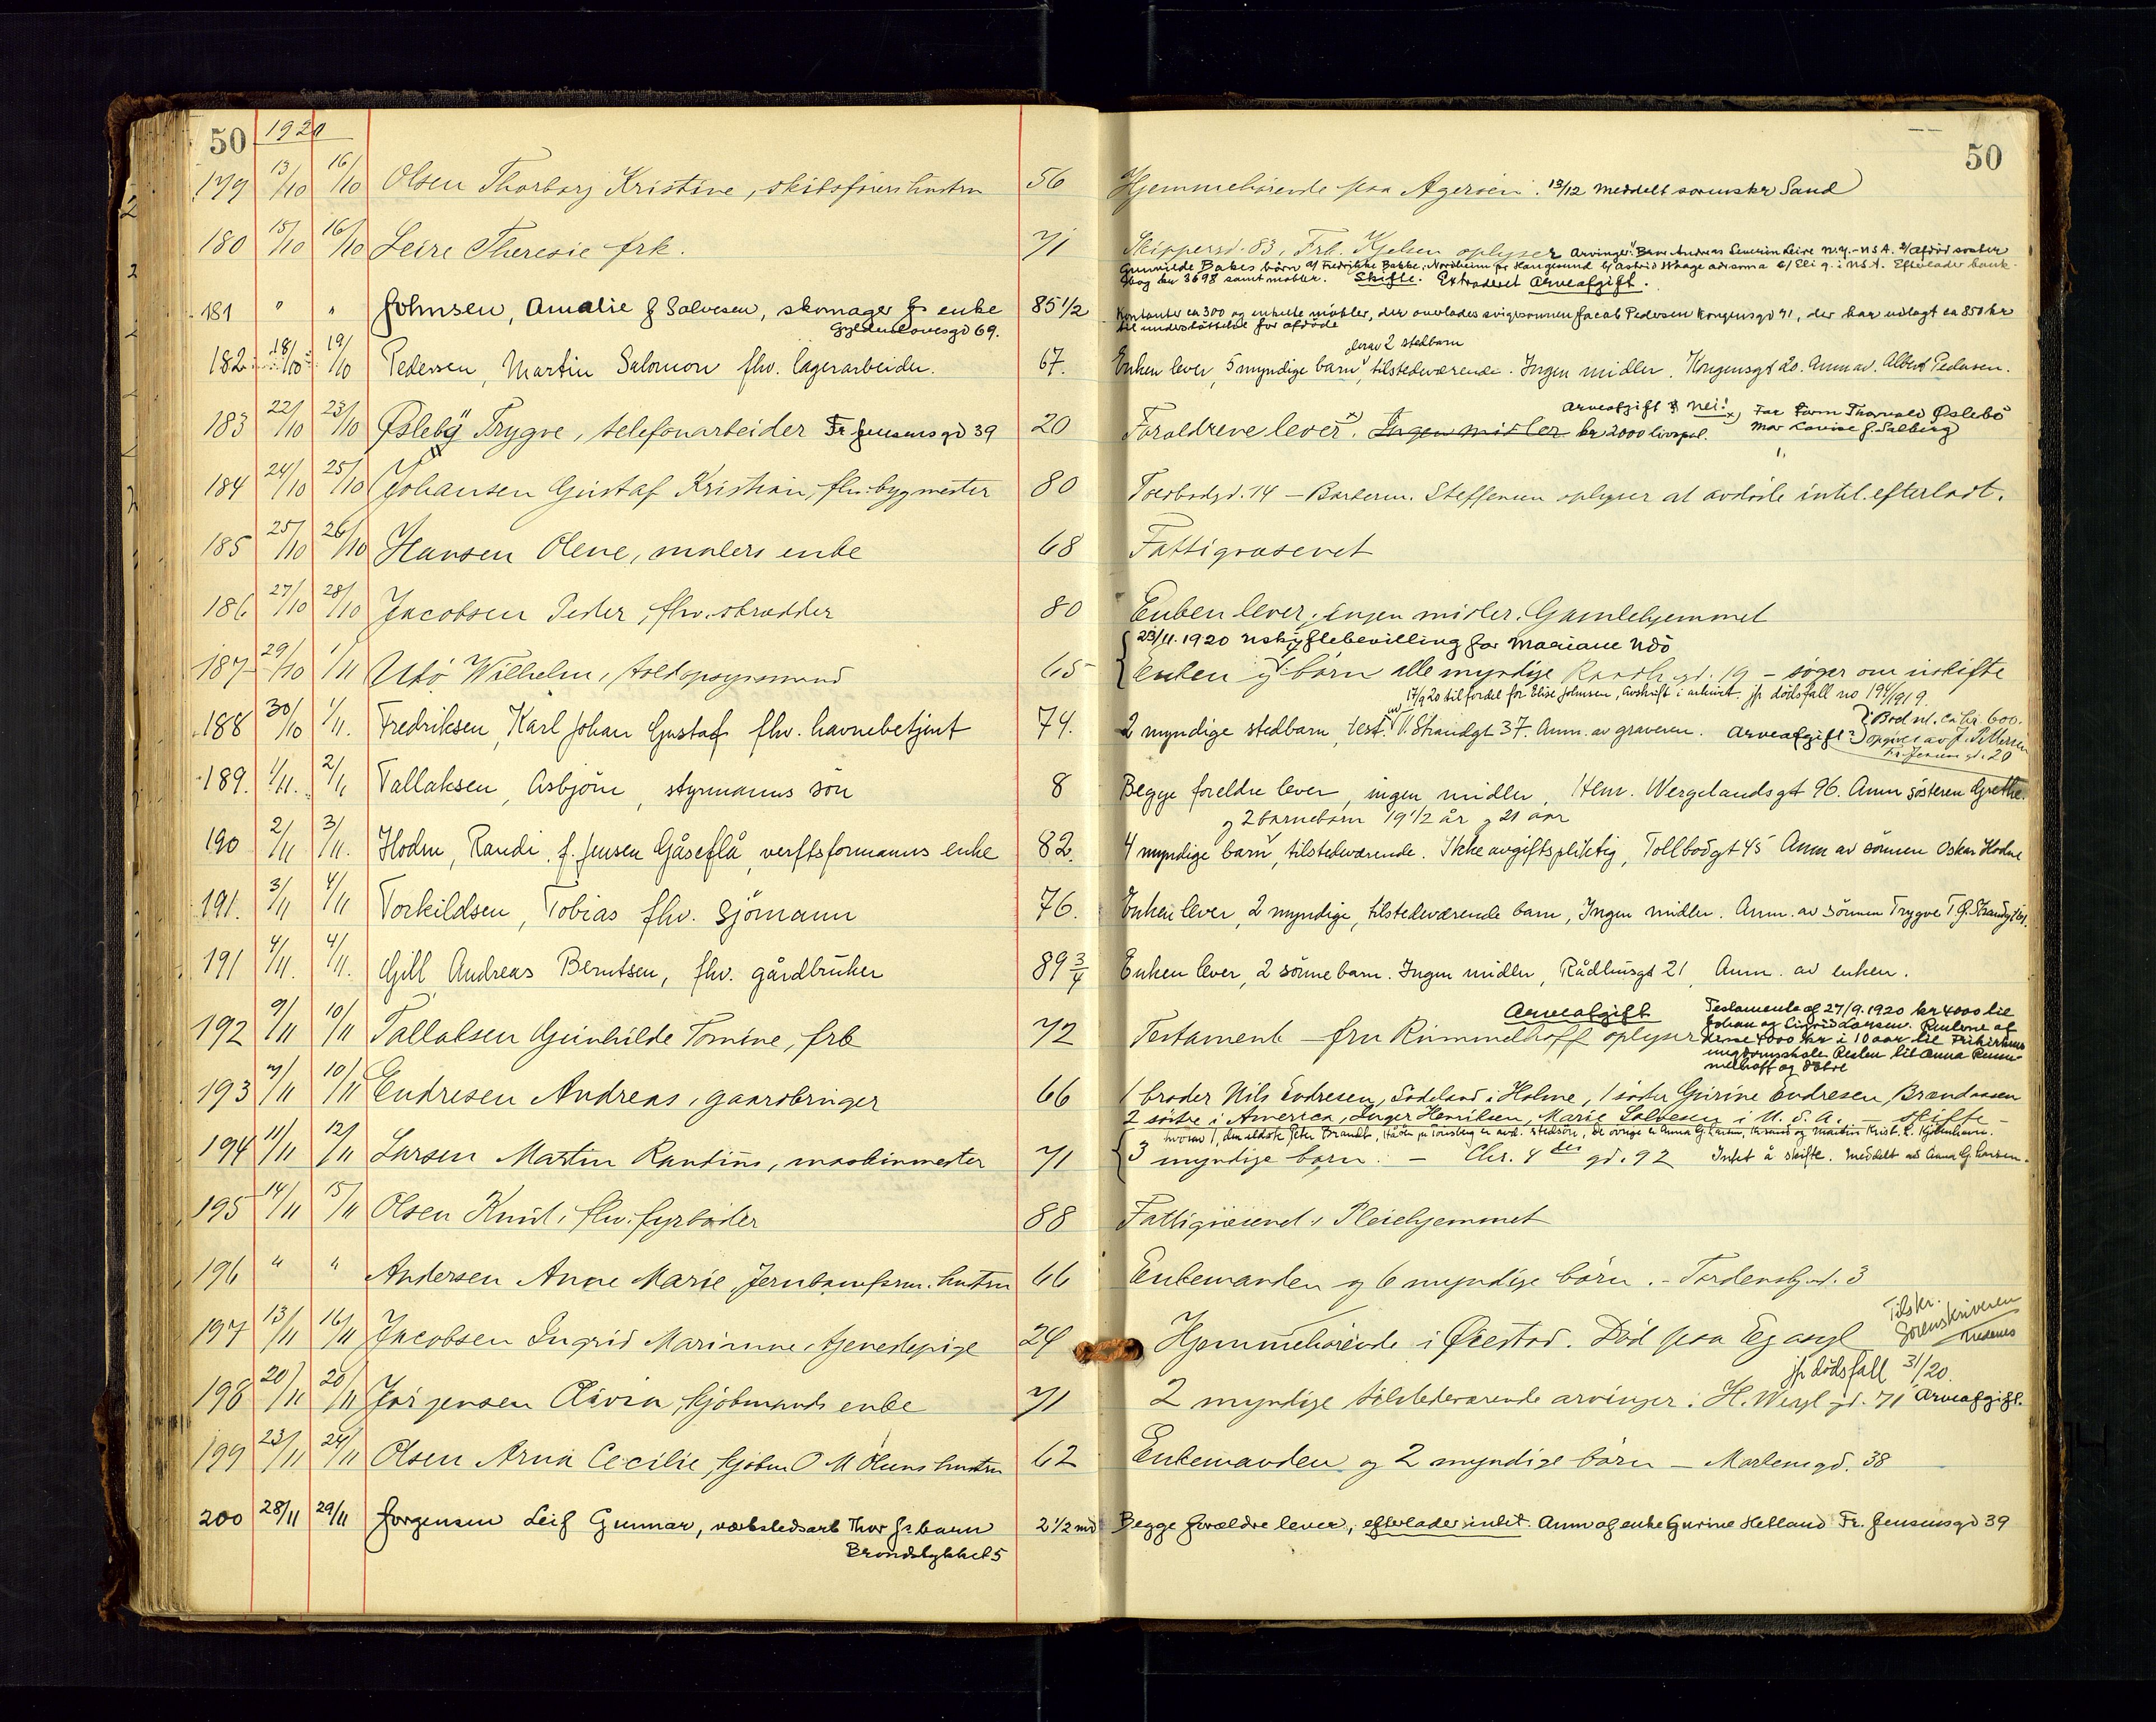 50 1920 50
179 13/10 16/10 Olsen Thorborg Kristine, skibsførers hustru 56 Hjemmehørende paa Agerøen. 13/12 meddelt sorenskr Sand
180 15/10 16/10 Leire Theresie frk. 71 Skippergd. 83, Frk. oplyser Arvinger: Bror Andreas Severin Leire N.Y. - U.S.A. 2/ afdød søster
Gunnilde Bakes børn a/ Fredrikke Bakke, Nordheim pr Haugesund b/ Astrid Waage c/ Eli g. i U.S.A. Efterlader bank-
bog kr 3698 samt møbler. Skifte. Extraderet Arveafgift.
181 " " Johnsen, Amalie f Salvesen, skomager Js enke 85 1/2 Kontanter ca 300 og enkelte møbler, der overlades svigersønnen Jacob Pedersen Kongensgd 91, der har udlagt ca 850 kr
Gyldenløvesgd 69. til understøttelse for afdøde
derav 2 stedbarn
182 18/10 19/10 Pedersen, Martin Salomon fhv. lagerarbeider. 67. Enken lever, 5 myndige barn, tilstedeværende. Ingen midler. Kongensgt 20. Anm av. Albert Pedersen.
Arveafgift? nei! x) Far Form Thorvald Øslebø
183 22/10 23/10 Øsleby Trygve, telefonarbeider Fr Jensensgd 39 20 Forældrene lever x). Ingen midler kr 2000 livspol. Mor Lovise f. Salberg
184 24/10 25/10 Johansen Gustaf Kristian, fhv. bygmester 80 Toldbodgd. 14 - Barberm. Steffensen oplyser at avdøde intet efterladt.
185 25/10 26/10 Hansen Olene, malers enke 68 Fattigvæsenet
186 27/10 28/10 Jacobsen Peder, fhv. skrædder 80 Enken lever, ingen midler. Gamlehjemmet
23/11.1920 uskiftebevilling for Mariane Udø
187 29/10 1/11 Udø Wilhelm, toldopsynsmand 65 Enken og børn alle myndige gd. 19 - søger om uskifte
17/9 20 til fordel for Elise Johnsen, avskrift i arkivet. jfr dødsfall no 194/1919.
188 30/10 1/11. Fredriksen, Karl Johan Gustaf fhv. havnebetjent 74. 2 myndige stedbarn, test. av V. Strandgt 37. Anm. av graveren. Arveafgift? Bod nl. ca kr 600.
opgives av J. Pettersen
Fr. Jensens gd. 20
189. 1/11. 2/11 Tallaksen, Asbjørn, styrmanns søn 8 Begge foreldre lever, ingen midler, Hen. Wergelandsgt 96. Anm søsteren Grethe.
og 2 barnebarn 19 1/2 år og 21 aar
190 2/11 3/11. Hodne, Randi, f. Jensen Gåseflå, verftsformanns enke 82. 4 myndige barn, tilstedeværende. Ikke avgiftspliktig, Tollbodgt 45 Anm av sønnen Oskar Hodne
191. 3/11 4/11 Torkildsen, Tobias fhv. sjømann 76. Enken lever, 2 myndige, tilstedeværende barn, Ingen midler. Anm. av sønnen Trygve T
191 4/11. 4/11. Gill Andreas Berntsen, fhv. gårdbruker 89 3/4 Enken lever, 2 sønnebarn. Ingen midler, Rådhusgt 21, Anm. av enken.
Arveafgift Testamente af 27/9.1920 kr 4000 til
192 9/11 10/11 Tallaksen Gunhilde Tomine, frk 72 Testament - fru Rummelhoff oplyser Johan og Sigrid Larsen. Renterne af
disse 4000 kr i 10 aar til Frikirkens
ungdomsskole Resten til Anna Rum-
melhoff og
193 9/11 10/11 Endresen Andreas, gaardbruger 66 1 broder Nils Endresen, Sødeland i Holme, 1 søster Gurine Endresen,
2 søstre i America, Inger Henriksen, Marie Salvesen i U.S.A. Skifte
hvorav 1, den ældste Peter Brandt, pr Tønsberg er avd. stedsøn, de øvrige er Anna G Larsen, Krsand og Martin Krist. L. Kjøbenhavn.
194 11/11 12/11 Larsen Martin Rantius, maskinmester 71 3 myndige børn. - Chr. 4des gd. 92 Intet å skifte. Meddelt av Anna G Larsen.
195 14/11 15/11 Olsen Knud, fhv. fyrbøder 88 Fattigvæsenet, Pleiehjemmet
196 " " Andersen Anne Marie, hustru 66 Enkemanden og 6 myndige børn. - Tordenskj. gd. 3
197 13/11 16/11 Jacobsen Ingrid Marianne, tjenestepige 24 Hjemmehørende i Øiestad. Død paa Eg asyl Tilskr. Sorenskriveren Nedenes
jfr dødsfall 31/20.
198 20/11 20/11 Jørgensen Olivia, kjøbmands enke 71 2 myndige tilstedeværende arvinger. H. Wergl gd. 71 Arveafgift.
199 23/11 24/11 Olsen Anna Cecilie, kjøbm O M Olsens hustru 62 Enkemanden og 2 myndige børn - Markensgd. 38
200 28/11 29/11 Jørgensen Leif Gunnar, værkstedsarb Thor Js barn 2 1/2 md Begge forældre lever, efterlader intet. Anm af enke Gurine Hetland Fr. Jensensgd 39
Brøndstykket 5